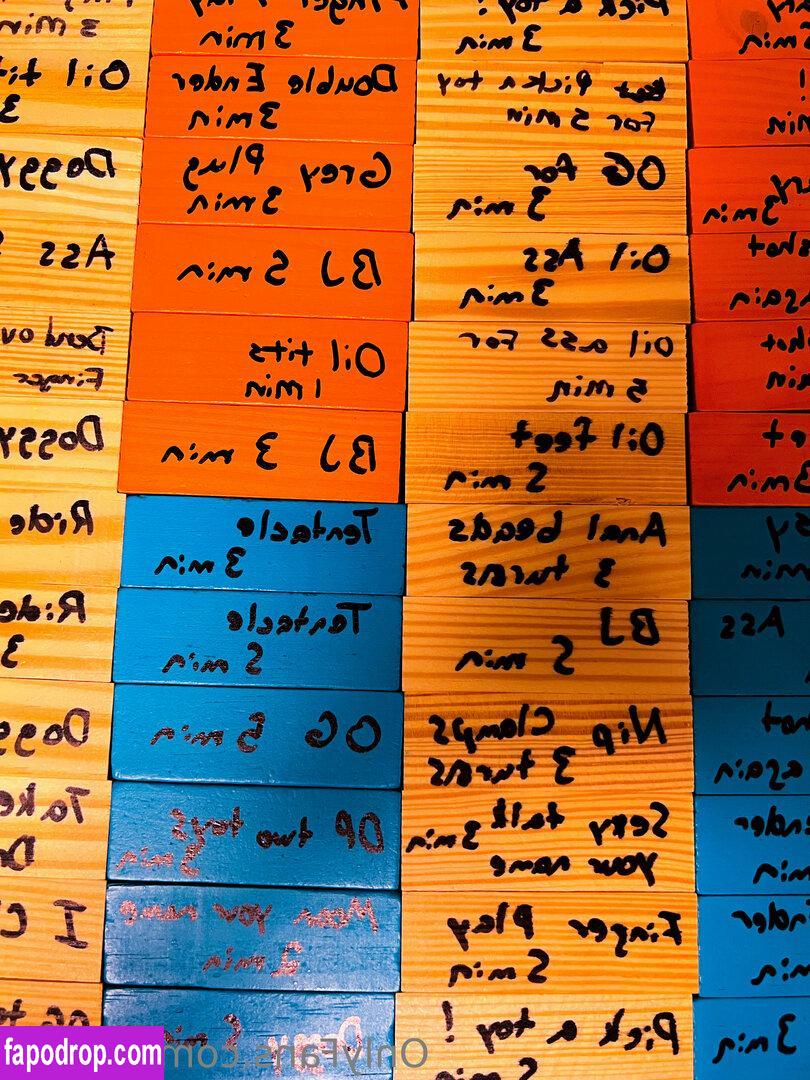 3 min
Oil tit
3
Doggy
Ass
Bend ov
Finger
Doggy
Ride
Ride
3
Dogg
Take
I C
3 min
Double Ender
3 min
Grey Plug
3 min
BJ 5 min
Oil tits
1 min
BJ 3 min
Tentacle
3 min
Tentacle
5 min
OG 5 min
DP two toys
5 min
Moan your name
2 min
Pick a toy!
3 min
Pick a toy
For 5 min
OG for
3 min
Oil Ass
3 min
Oil ass For
5 min
Oil feet
5 min
Anal beads
3 turns
BJ
5 min
Nip Clamps
3 turns
Sexy talk
3 min
your name
Finger Play
5 min
Pick a toy!
min
min
3 min
again
min
3 min
min
Ass
again
ender
min
ender
min
3 min
OnlyFans.com
fapodrop.com